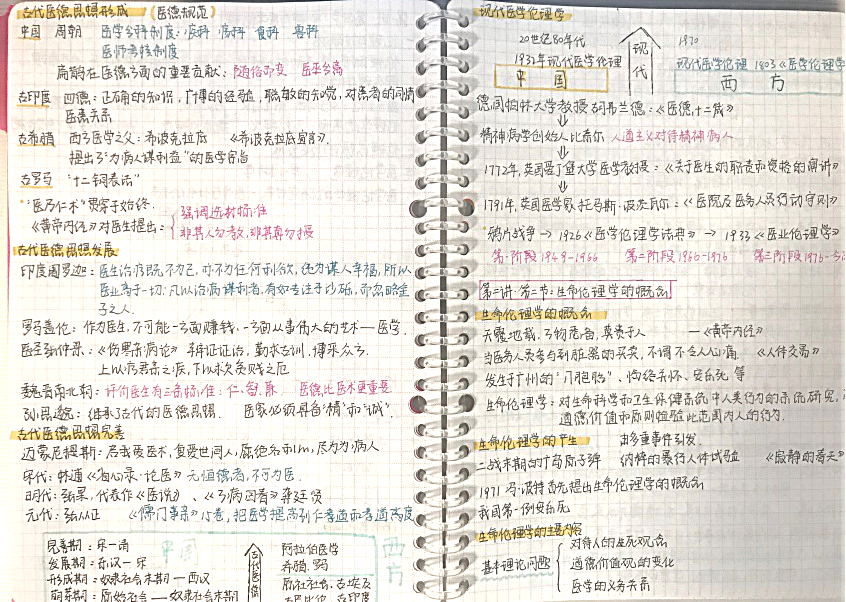 古代医德思想形成 (医德规范)
中国 周朝 医学分科制度:疾科 疡科 食科 兽科
医师考核制度
扁鹊在医德方面的重要贡献: 随俗而变 医巫分离
古印度 四德:正确的知识,广博的经验,聪敏的知觉,对患者的同情
医患关系
古希腊 西方医学之父:希波克拉底 《希波克拉底宣言》.
提出了"为病人谋利益"的医学宗旨
古罗马 "十二铜表法"
"医乃仁术"贯穿于始终.
《黄帝内经》对医生提出: 强调选材标准
非其人勿教,非其真勿授
古代医德思想发展
印度阇罗迦:医生治病既不为己,亦不为任何利欲,纯为谋人幸福,所以
医业高于一切.凡以治病谋利者,有如专注于沙砾,而忽略金
子之人.
罗马盖伦:作为医生,不可能一方面赚钱,一方面从事伟大的艺术—医学.
医圣张仲景:《伤寒杂病论》 辩证论治,勤求古训,博采众方.
上以疗君亲之疾,下以求贫贱之厄
魏晋南北朝:评价医生有三条标准:仁、智、廉 医德比医术更重要.
孙思邈:继承了古代的医德思想. 医家必须具备"精"和"诚".
古代医德思想完善
迈蒙尼提斯:启我爱医术,复爱世间人,愿绝名利心,尽力为病人
宋代:林逋《省心录·论医》无恒德者,不可为医.
明代:张杲,代表作《医说》、《万病回春》龚廷贤
元代:张从正 《儒门事亲》15卷,把医学提高到仁孝道和孝道高度
完善期:宋—清
发展期:东汉—宋
形成期:奴隶社会末期—西汉
萌芽期:原始社会—奴隶社会末期
中国
古代医德
阿拉伯医学
希腊、罗马
原社社会、古埃及
古巴比伦、古印度
西方
现代医学伦理学
20世纪80年代
1932年现代医学伦理
中国
现代
1970
现代医学伦理 1803《医学伦理学》
西方
德国柏林大学教授胡弗兰德:《医德十二箴》
精神病学创始人比奈尔 人道主义对待精神病人
1772年,英国爱丁堡大学医学教授:《关于医生的职责和资格的演讲》
1791年,英国医学家托马斯·波茨瓦尔:《医院及医务人员行动守则》
鸦片战争→1926《医学伦理学法典》→1933《医业伦理学》
第一阶段1949-1966 第二阶段1966-1976 第三阶段1976-
第二讲:第二节:生命伦理学的概念
生命伦理学的概念
天覆地载,万物悉备,莫贵于人 —《黄帝内经》
当医务人员参与到脏器的买卖,不谓不令人心痛 《人体交易》
发生于广州的"八胞胎"、临终关怀、安乐死 等
生命伦理学:对生命科学和卫生保健系统中人类行为的系统研究,
道德价值和原则检验此范围内人的行为.
生命伦理学的产生 由多重事件引发.
二战末期的广岛原子弹 纳粹的暴行人体试验 《寂静的春天》
1971 马·波特首先提出生命伦理学的概念
我国第一例安乐死
生命伦理学的主要内容
基本理论问题 对待人的生死观念
道德价值观的变化
医学的义务关系